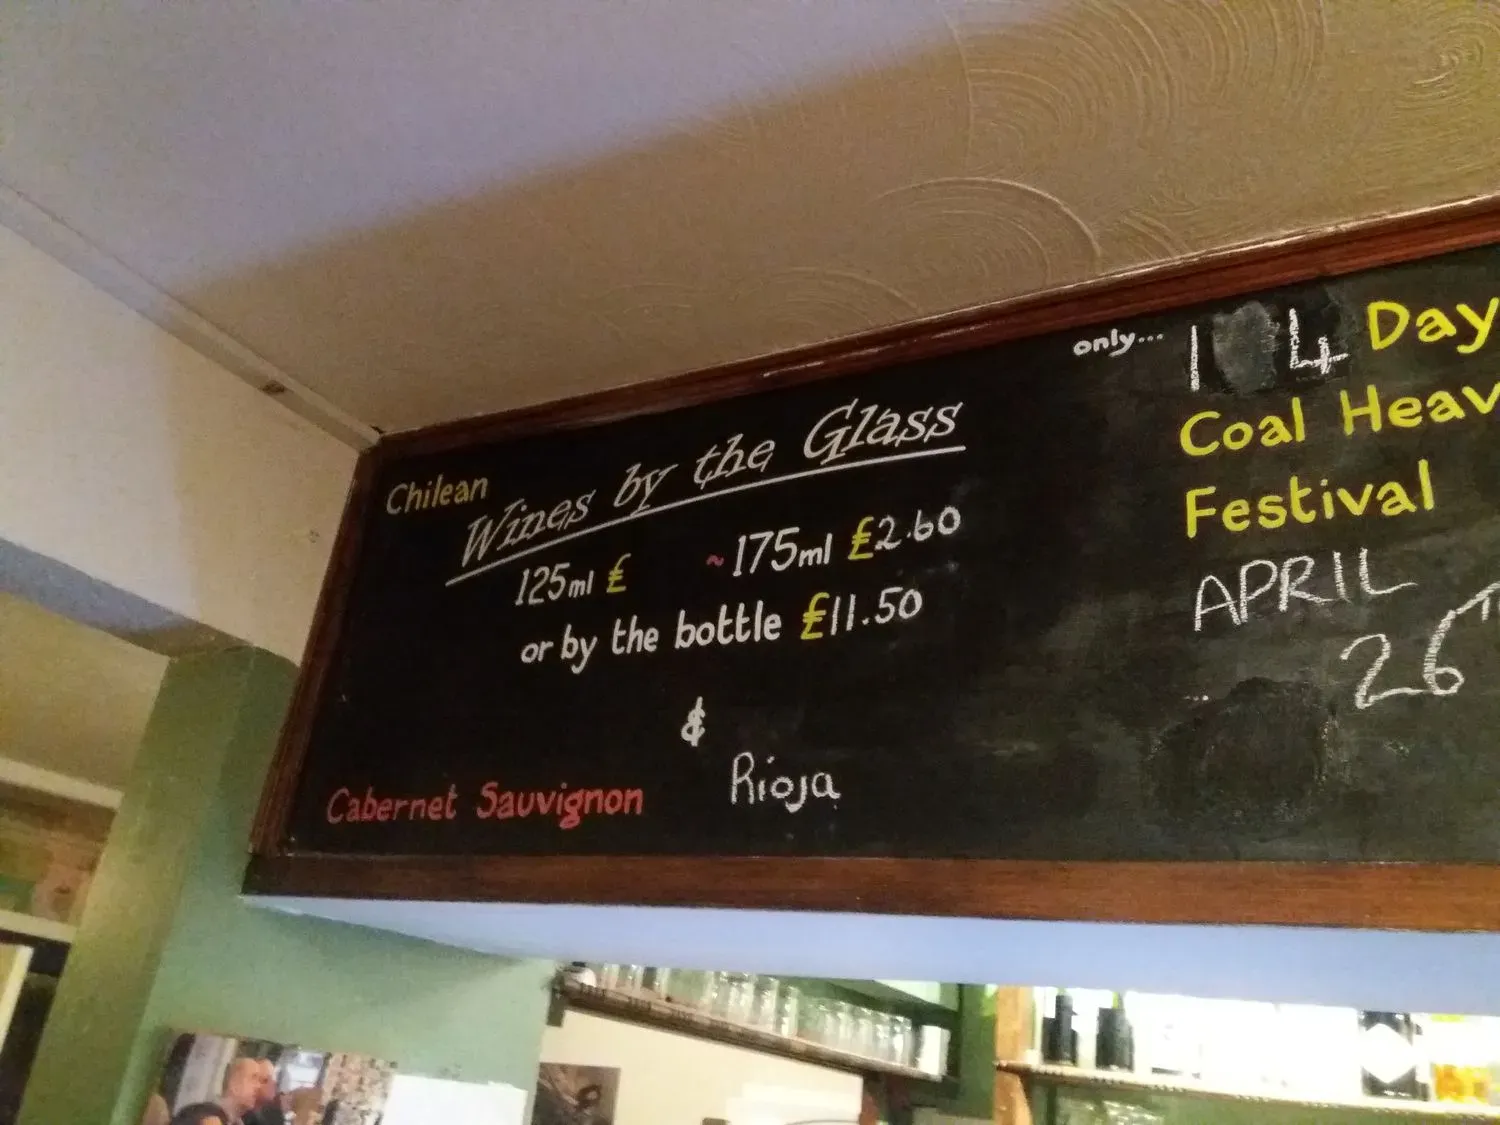 Chilean
Wines by the Glass
125ml £ ~175ml £2.60
or by the bottle £11.50
&
Cabernet Sauvignon Rioja
only... 1 4 Day
Coal Heav
Festival
APRIL
26TH